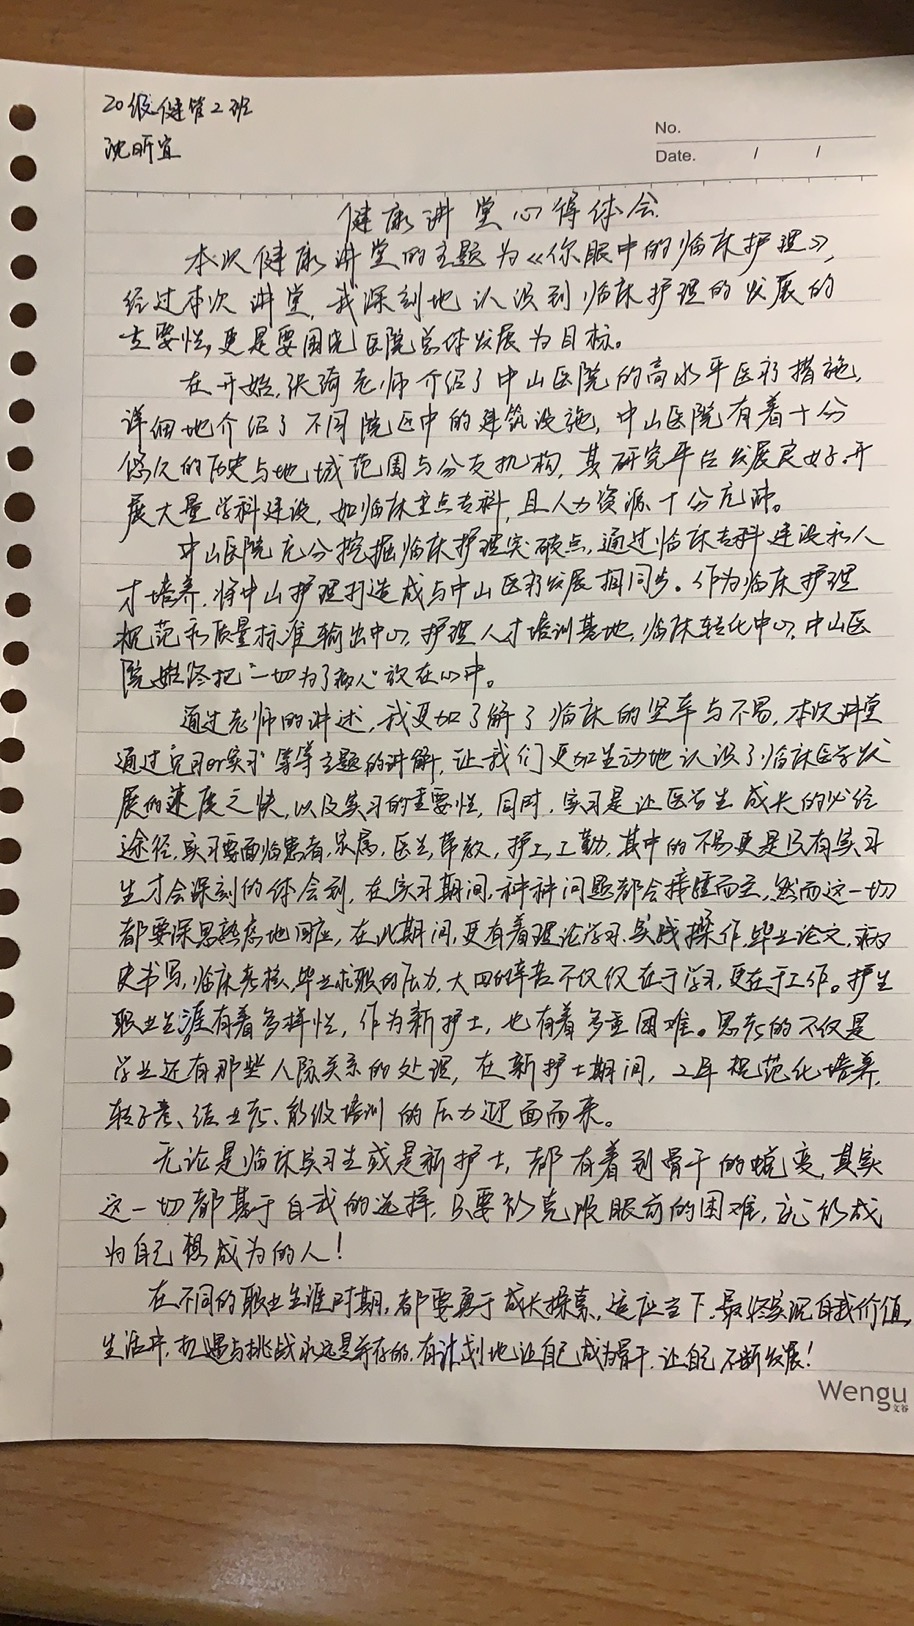 20级健管2班
沈昕宜
No.
Date. / /
健康讲堂心得体会
本次健康讲堂的主题为《你眼中的临床护理》,
经过本次讲堂,我深刻地认识到临床护理的发展的
主要性,更是要围绕医院总体发展为目标。
在开始,张琦老师介绍了中山医院的高水平医疗措施,
详细地介绍了不同院区中的建筑设施,中山医院有着十分
悠久的历史与地域范围与分支机构,其研究平台发展良好,开
展大量学科建设,如临床重点专科,且人力资源十分充沛。
中山医院充分挖掘临床护理突破点,通过临床专科建设和人
才培养,将中山护理打造成与中山医疗发展相同步。作为临床护理
规范和质量标准输出中心,护理人才培训基地,临床转化中心,中山医
院始终把“一切为了病人”放在心中。
通过老师的讲述,我更加了解了临床的艰辛与不易,本次讲堂
通过见习or实习等等主题的讲解,让我们更加生动地认识了临床医学发
展的速度之快,以及实习的重要性,同时,实习是让医学生成长的必经
途径,实习要面临患者,家属,医生,带教,护工,工勤,其中的不易更是只有实习
生才会深刻的体会到,在实习期间,种种问题都会接踵而至,然而这一切
都要深思熟虑地回应,在此期间,更有着理论学习、实战操作,毕业论文,病
史书写,临床考核,毕业求职的压力,大四的辛苦不仅仅在于学习,更在于工作。护生
职业生涯有着多样性,作为新护士,也有着多重困难。思考的不仅是
学业还有那些人际关系的处理,在新护士期间,2年规范化培养,
轮转考、结业考、能级培训的压力迎面而来。
无论是临床实习生或是新护士,都有着到骨干的蜕变,其实
这一切都基于自我的选择,只要能克服眼前的困难,就能成
为自己想成为的人!
在不同的职业生涯时期,都要勇于成长探索,适应当下,最终实现自我价值,
生活中,机遇与挑战永远是并存的,有计划地让自己成为骨干,让自己不断发展!
Wengu
文谷